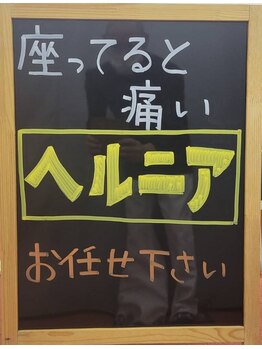 座ってると
痛い
ヘルニア
お任せ下さい